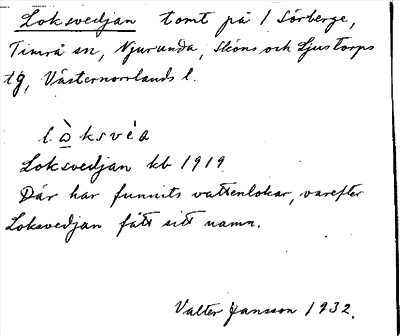 Loksvedjan tomt på 1 Sörberge,
Timrå sn, Njurunda, Sköns och Ljustorps
tg, Västernorrlands l.
lò̱ksvéa
Loksvedjan kb 1919
Där har funnits vattenlokar, varefter
Loksvedjan fått sitt namn.
Valter Jansson 1932.